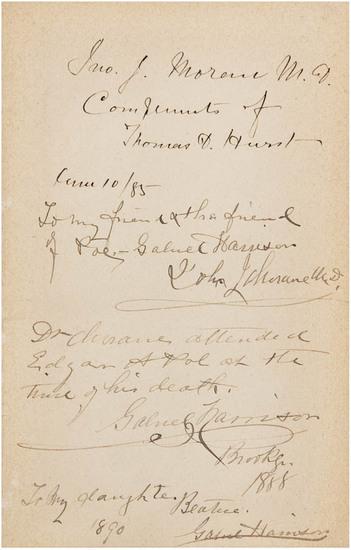 Jno. J. Moran M.D.
Compliments of
Thomas D. Hurst
June 10/85
To my friend & the friend
of Poe - Gabriel Harrison
John J Moran M.D.
Dr Moran attended
Edgar A Poe at the
time of his death.
Gabriel Harrison
Brooklyn
1888
To My daughter Beatrice.
1890
Gabriel Harrison